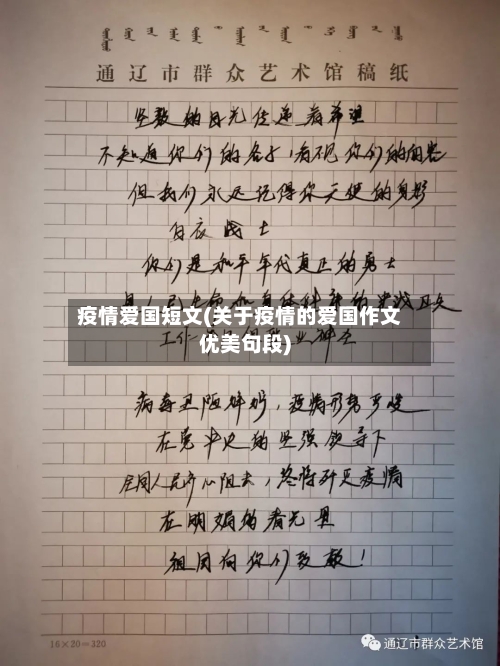 通辽市群众艺术馆稿纸
坚毅的目光传递着希望
不知道你们的名字，看不见你们的面容
但我们永远记得你天使的身影
白衣战士
你们是和平年代真正的勇士
疫情爱国短文(关于疫情的爱国作文
优美句段)
病毒丑陋
疫情形势严峻
在党中央的坚强领导下
全国人民齐心阻击，终将歼灭疫情
在明媚的春光里
祖国向你们致敬！
16×20=320
通辽市群众艺术馆